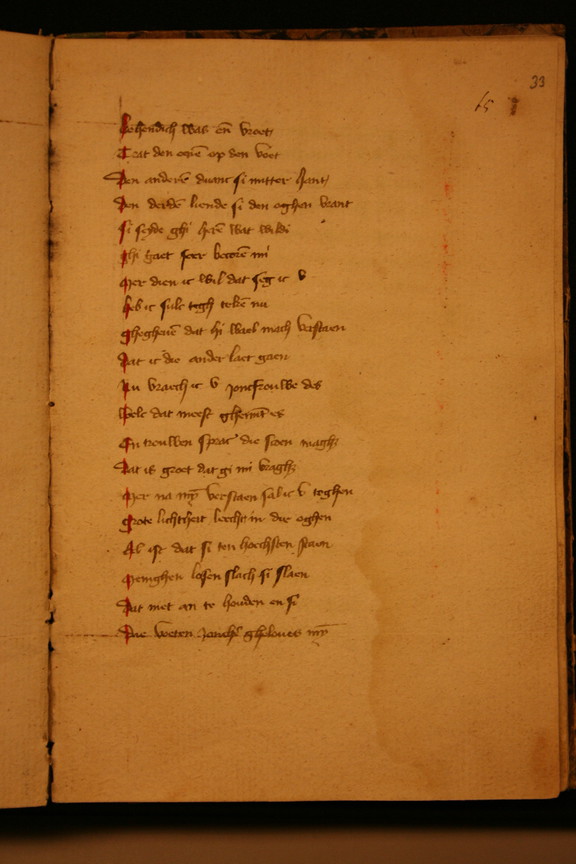 33
15
Behendich was en̄ vroet
Trat den enē op den voet
Den anderē duanc si mitter hant
Den derdē liende si den oghen want
Si seyde ghi herē wat wildi
Ghi gaet seer becorē mi
Mer dien ic wil dat seg ic v
Heb ic sulc togh tekē nu
Ghegheuē dat hi wael mach verstaen
Dat ic die ander laet gaen
Nu vraech ic v joncfrouwe des
Welc dat meest ghemīt es
En trouwen sprac die scoen maghz
Dat is groet dat gi mi vraghz
Mer na mȳ verstaen sal ic v toghen
Grote lichtheit leecht in die oghen
Al ist dat si ten hoechsten staen
Menighen losen slach si slaen
Dat met an te houden en si
Die voeten joncfr ghelouet mȳ